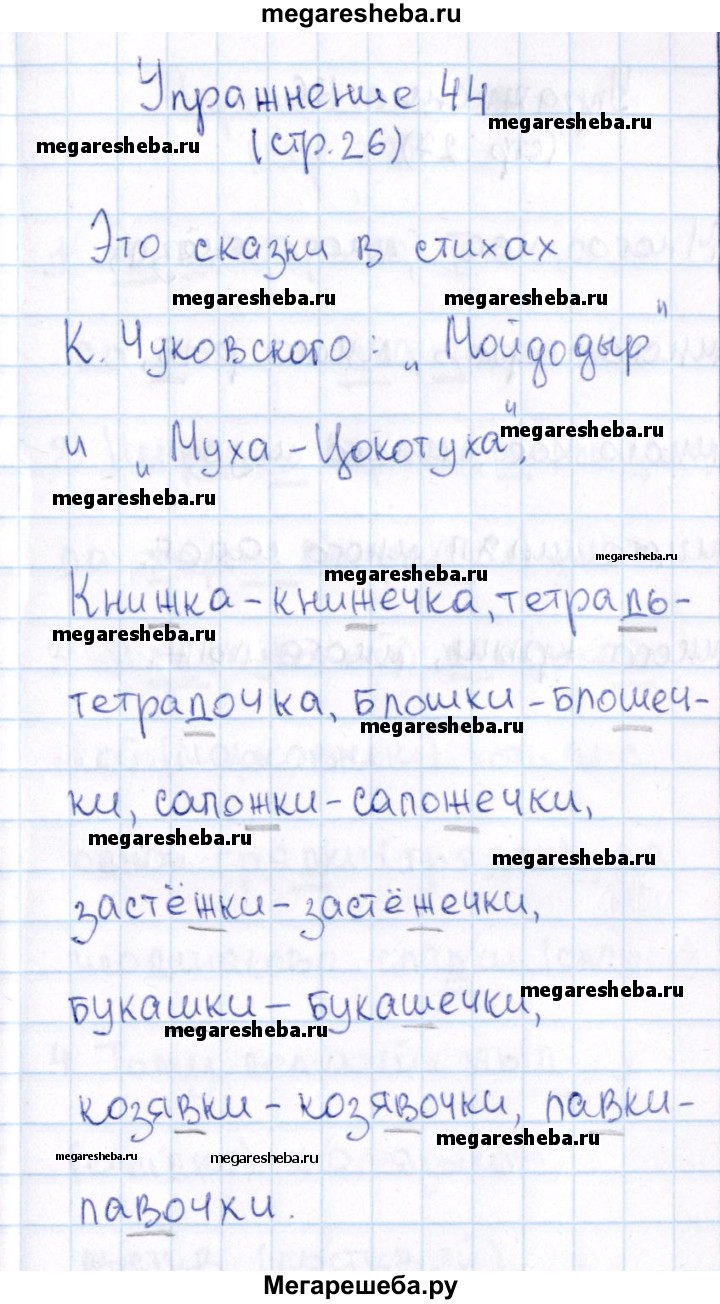 megaresheba.ru
Упражнение 44
megaresheba.ru
megaresheba.ru
(стр. 26)
Это сказки в стихах
megaresheba.ru megaresheba.ru
К. Чуковского: „Мойдодыр"
и „Муха-Цокотуха",
megaresheba.ru
megaresheba.ru
megaresheba.ru
megaresheba.ru
Книжка-книжечка, тетрадь-
megaresheba.ru
тетрадочка, блошки-блошеч-
megaresheba.ru
ки, сапожки-сапожечки,
megaresheba.ru
megaresheba.ru
застёжки-застёжечки,
букашки-букашечки,
megaresheba.ru
megaresheba.ru
козявки-козявочки, лавки-
megaresheba.ru
megaresheba.ru megaresheba.ru
лавочки.
Мегарешеба.ру